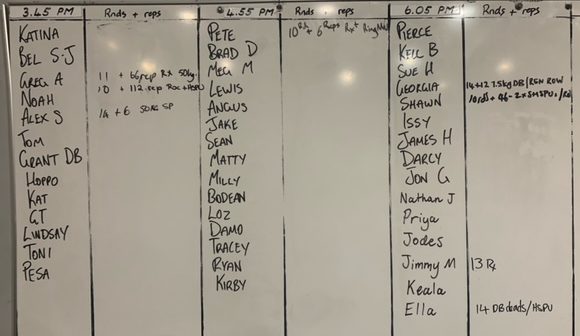 3.45 PM Rnds + reps
KATINA
BEL S.J
GREG A 11 + 66rep Rx 50kg
NOAH 10 + 112 rep
ALEX S 14 + 6 50KG SP
TOM
GRANT DB
HOPPO
KAT
GT
LINDSAY
TONI
PESA
4.55 PM Rnds + reps
PETE 10 + 6 Reps Rx+
BRAD D
MEG M
LEWIS
ANGUS
JAKE
SEAN
MATTY
MILLY
BODEAN
LOZ
DAMO
TRACEY
RYAN
KIRBY
6.05 PM Rnds + reps
PIERCE
KELL B
SUE H
GEORGIA 14+12 7.5kg DB/RSN ROW
SHAWN 10rds + 46 -
ISSY
JAMES H
DARCY
JON G
Nathan J
Priya
Jodes
Jimmy M 13 Rx
Keala
Ella 14 DB deads/HSPU